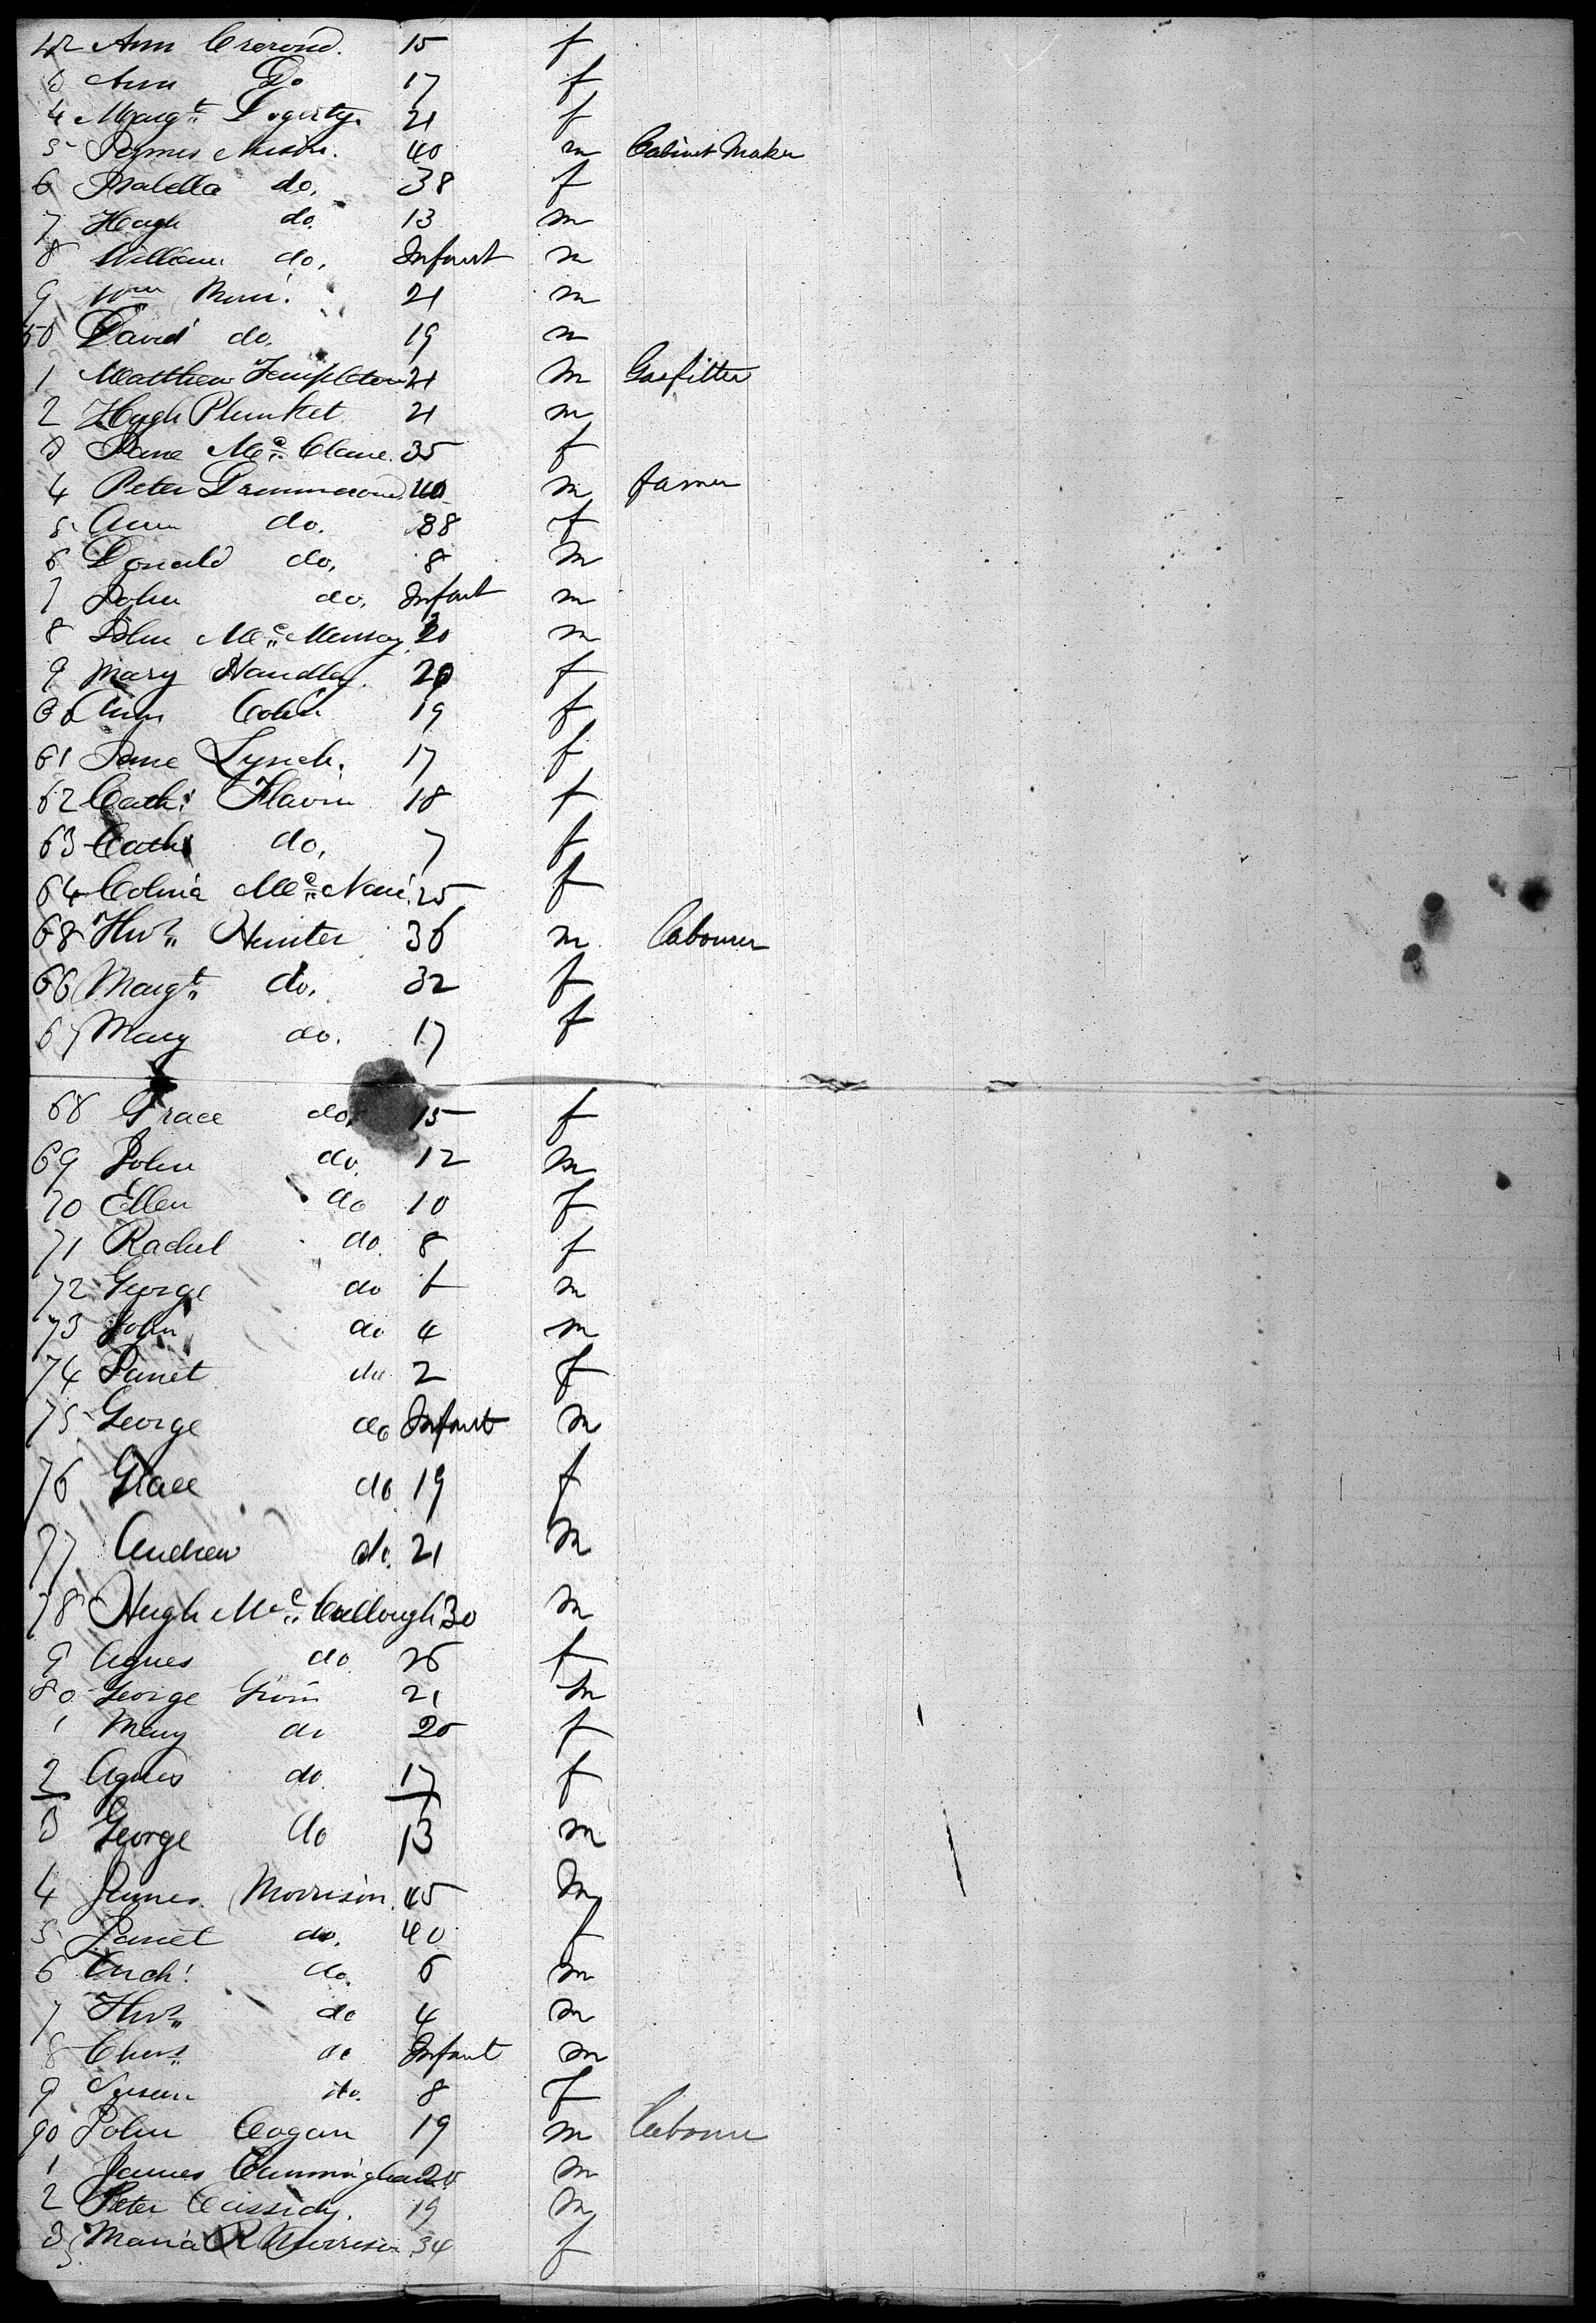 42 Ann 15 f
3 Ann Do 17 f
4 Margt. Dogerty. 21 f
5 James 40 m Cabinet Maker
6 Isabella do. 38 f
7 Hugh do. 13 m
8 William do. Infant m
9 Wm Muir. 21 m
50 David do. 19 m
1 Matthew Templeton 21 m Gasfitter
2 Hugh Plunket 21 m
3 Jane Mc. Clane. 35 f
4 Peter Drummond 40 m Farmer
5 Ann do. 38 f
6 Donald do. 8 m
7 John do. Infant m
8 John Mc. 20 m
9 Mary Handley. 20 f
60 Ann 19 f
61 Jane Lynch. 17 f
62 Cath: Flavin 18 f
63 Cath: do. 7 f
64 Mc. Nair 25 f
68 Thos. Hunter 36 m Labourer
66 Margt. do. 32 f
67 Mary do. 17 f
68 Grace do. 15 f
69 John do. 12 m
70 Ellen do 10 f
71 Rachel do. 8 f
72 George do 6 m
73 John do 4 m
74 Janet do 2 f
75 George do Infant m
76 Grace do 19 f
77 Andrew do. 21 m
78 Hugh Mc. Cullough 30 m
9 Agnes do 26 f
80 George 21 m
1 Mary do 20 f
2 Agnes do. 17 f
3 George do 13 m
4 James Morrison. 45 m
5 Janet do. 40 f
6 Arch: do. 6 m
7 Thos. do 4 m
8 Chas. do Infant m
9 Susan do. 8 f
90 John Cogan 19 m Labourer
1 James Cunningham 20 m
2 Peter Cassidy. 19 m
3 Maria R Morrison 34 f